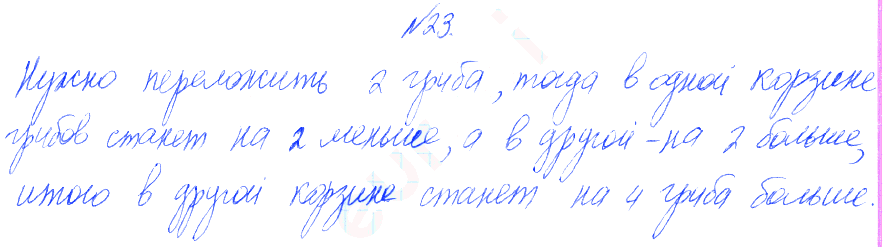 №23.
Нужно переложить 2 гриба, тогда в одной корзине
грибов станет на 2 меньше, а в другой - на 2 больше,
итого в другой корзине станет на 4 гриба больше.